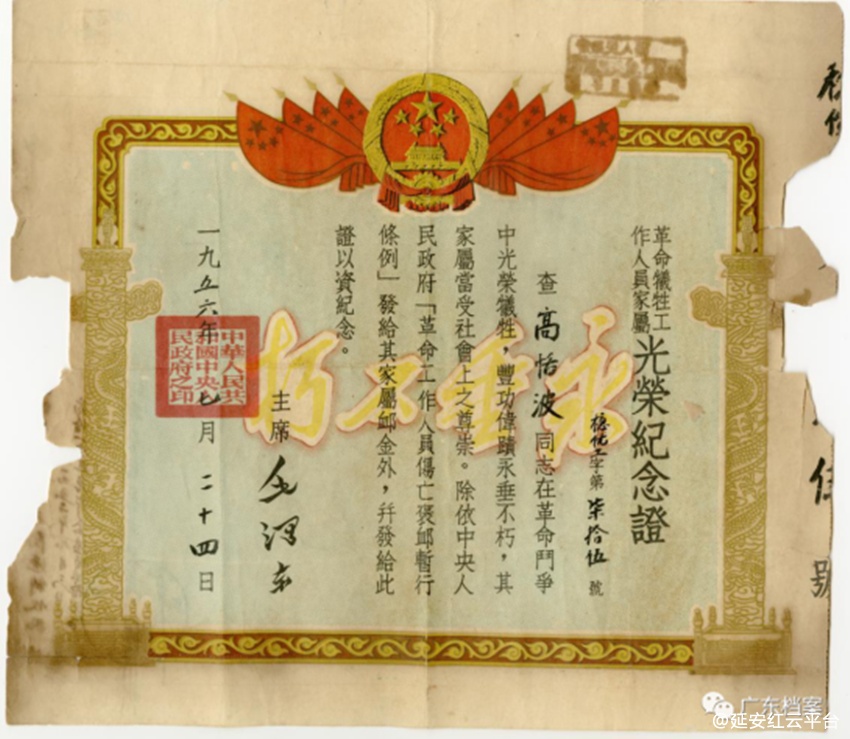 革命犧牲工
作人員家屬
光榮紀念證
穗优工字第柒拾伍號
查高恬波同志在革命鬥爭
中光榮犧牲，豐功偉蹟永垂不朽，其
家屬當受社會上之尊崇。除依中央人
民政府「革命工作人員傷亡褒卹暫行
條例」發給其家屬卹金外，幷發給此
證以資紀念。
主席 毛澤东
一九五六年七月二十四日
中華人民共
和國中央人
民政府之印
永垂不朽
號
广东档案
@延安红云平台